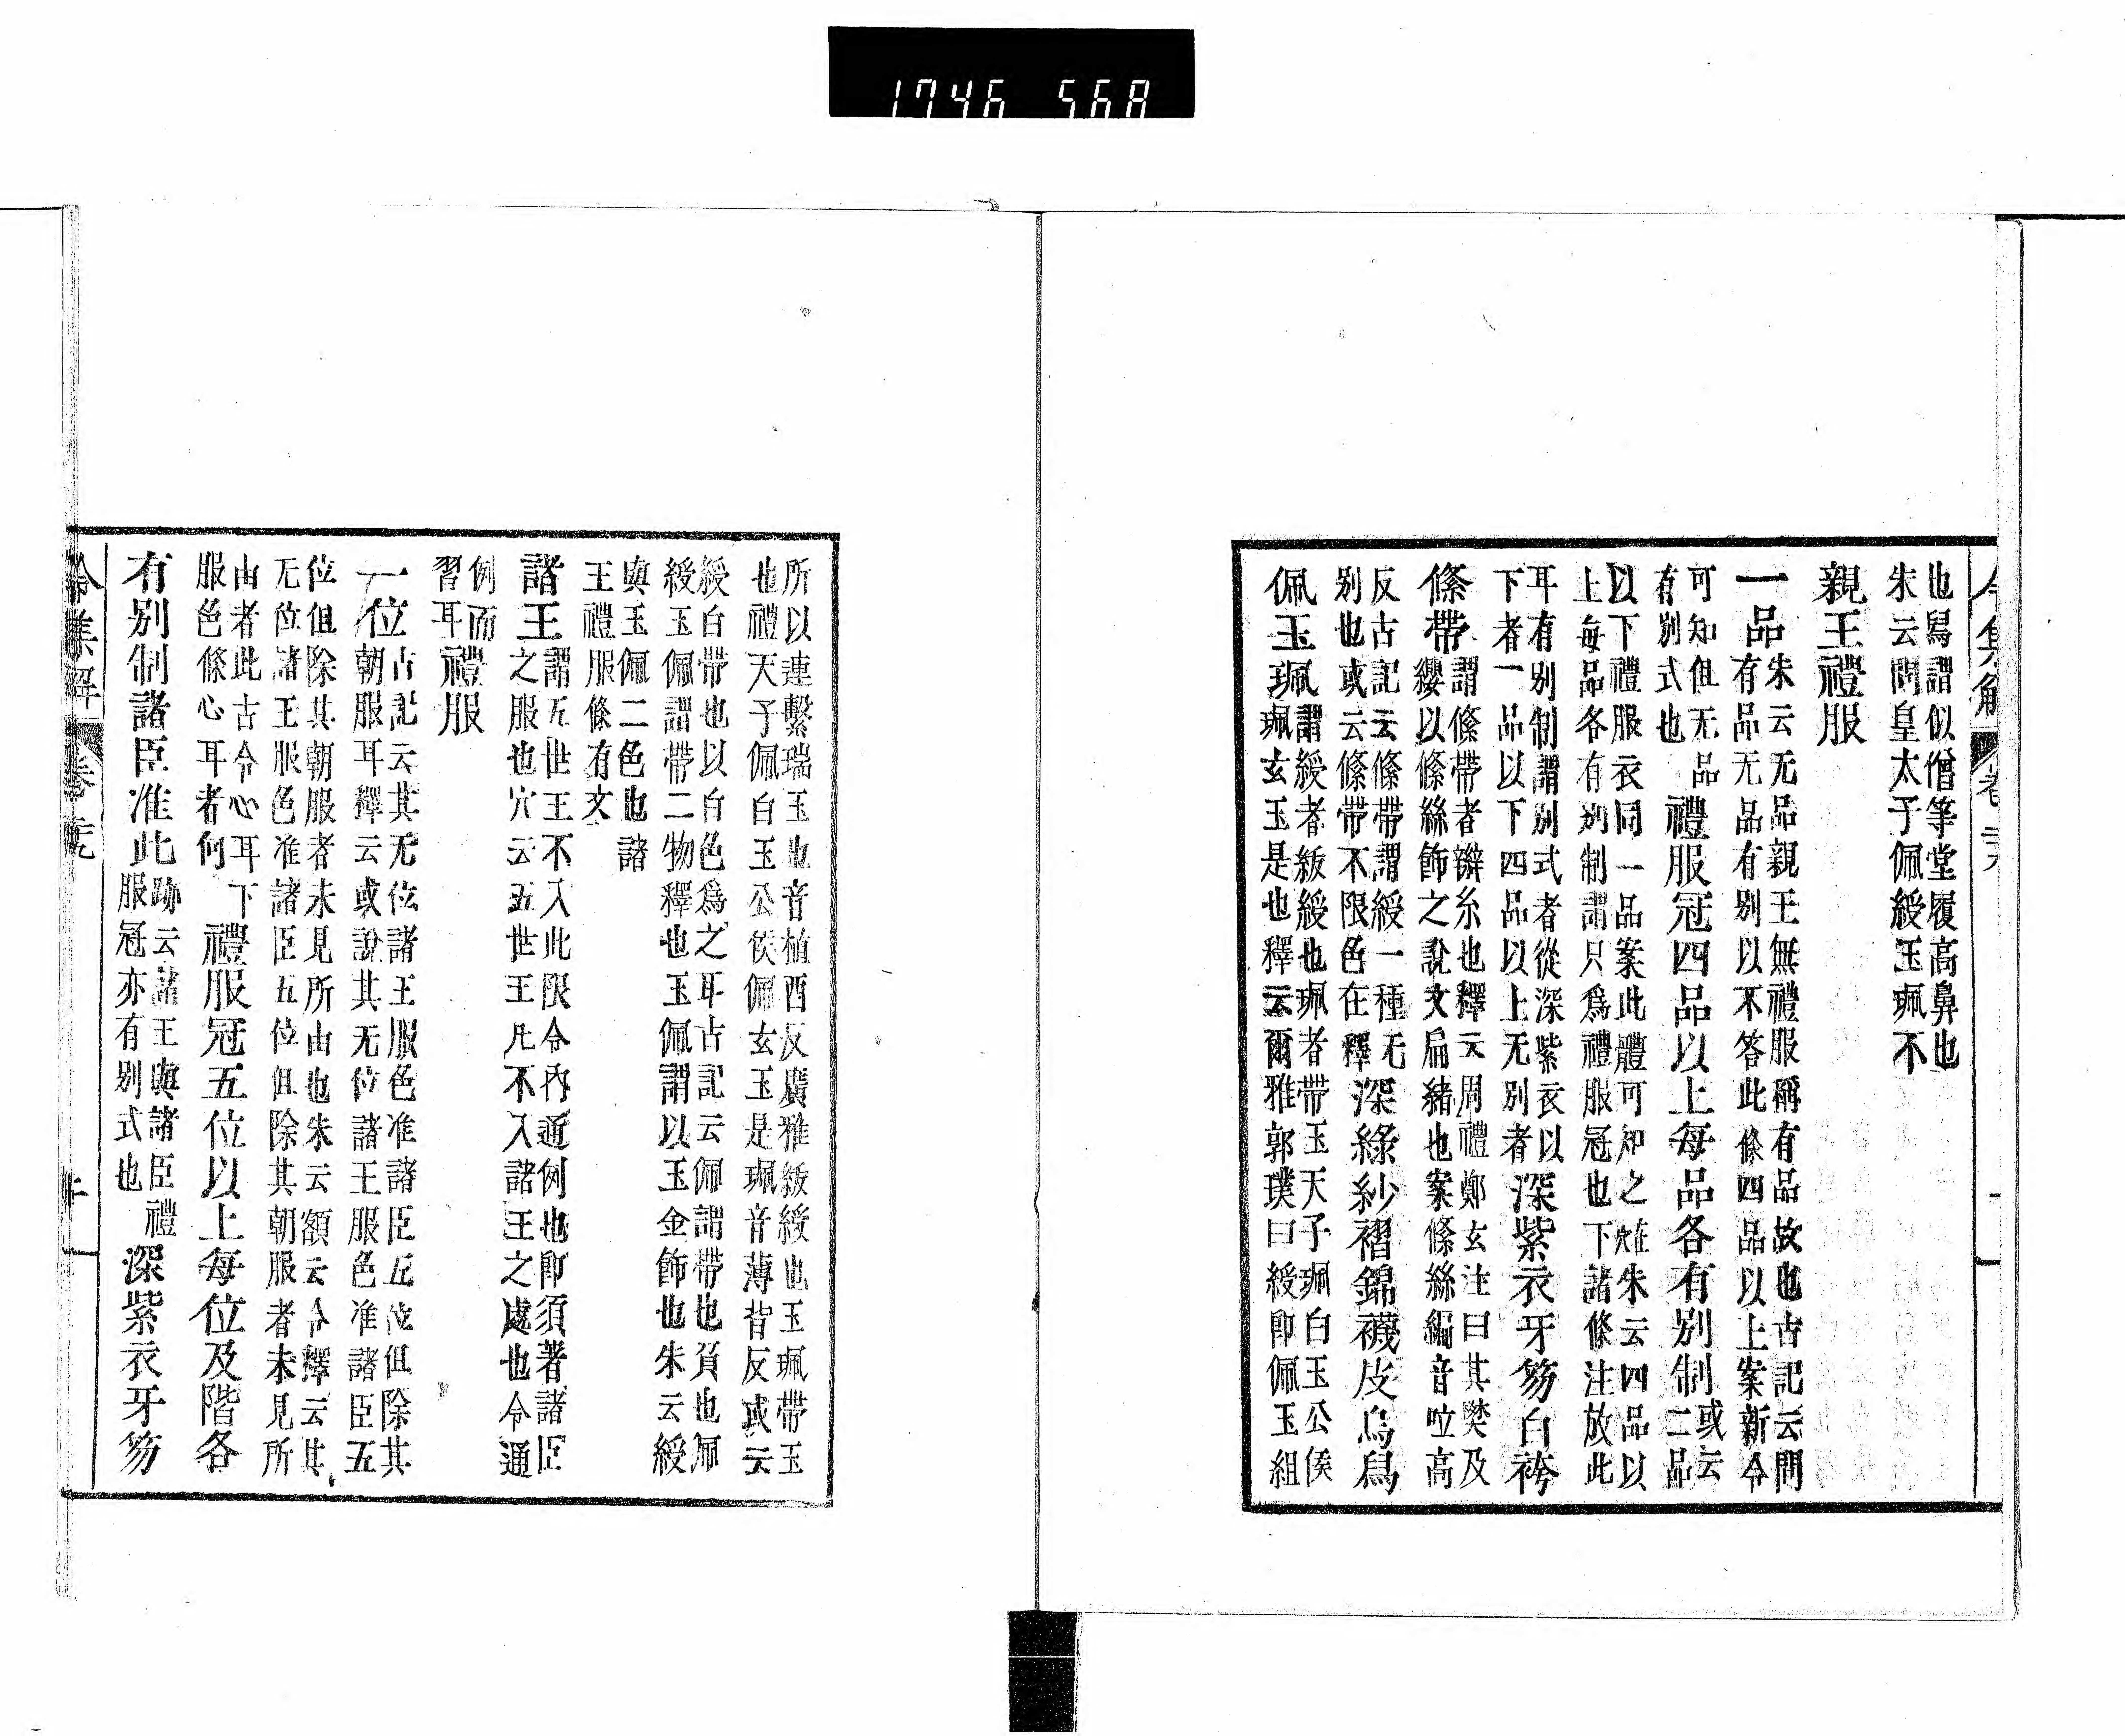 1746 568
令集解 卷二十九
也舄謂似僧等堂履高鼻也
朱云問皇太子佩綬玉珮不
親王禮服
一品朱云无品親王無禮服稱有品故也古記云問
有品无品有別以不答此條四品以上案新令
可知但无品
有別式也
禮服冠四品以上每品各有別制或云二品
以下禮服衣同一品案此體可知之在穴朱云四品以
上每品各有別制謂只爲禮服冠也下諸條注放此
耳有別制謂別式者從深紫衣以
下者一品以下四品以上无別者
深紫衣牙笏白袴
條帶謂條帶者辮糸也釋云周禮鄭玄注曰其樊及
纓以條絲飾之說文扁緒也案條絲編音㕸高
反古記云條帶謂綬一種无
別也或云條帶不限色在釋
深綠紗褶錦襪皮烏舄
佩玉珮謂綬者紱綬也珮者帶玉天子珮白玉公侯
珮玄玉是也釋云爾雅郭璞曰綬卽佩玉組
所以連繫瑞玉也音植酉反廣雅紱綬也玉珮帶玉
也禮天子佩白玉公侯佩玄玉是珮音薄背反或云
綬白帶也以白色爲之耳古記云佩謂帶也須也佩
綬玉佩謂帶二物釋也玉佩謂以玉金飾也朱云綬
與玉佩二色也諸
王禮服條有文
諸王謂五世王不入此限令內通例也卽須著諸臣
之服也穴云五世王凡不入諸王之處也令通
例而
習耳
禮服
一位古記云其无位諸王服色准諸臣五位但除其
朝服耳釋云或說其无位諸王服色准諸臣五
位但除其朝服者未見所由也朱云額云令釋云其
无位諸王服色准諸臣五位但除其朝服者未見所
由者此古令心耳下
服色條心耳者何
禮服冠五位以上每位及階各
有別制諸臣准此跡云諸王與諸臣禮
服冠亦有別式也
深紫衣牙笏
令集解 卷二十九 十